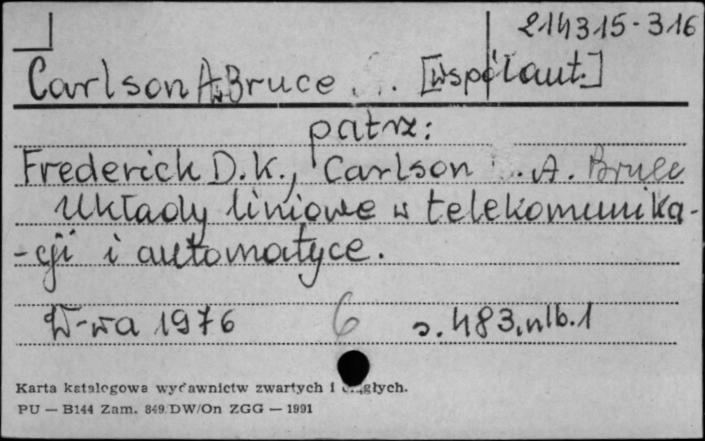 214315-316
Carlson A. Bruce [współaut.]
patrz:
Frederick D.K., Carlson A. Bruce
Układy liniowe w telekomunika-
-cji i automatyce.
W-wa 1976 6 s. 483, nlb. 1
Karta katalogowa wydawnictw zwartych i ciągłych.
PU — B144 Zam. 849/DW/On ZGG — 1991